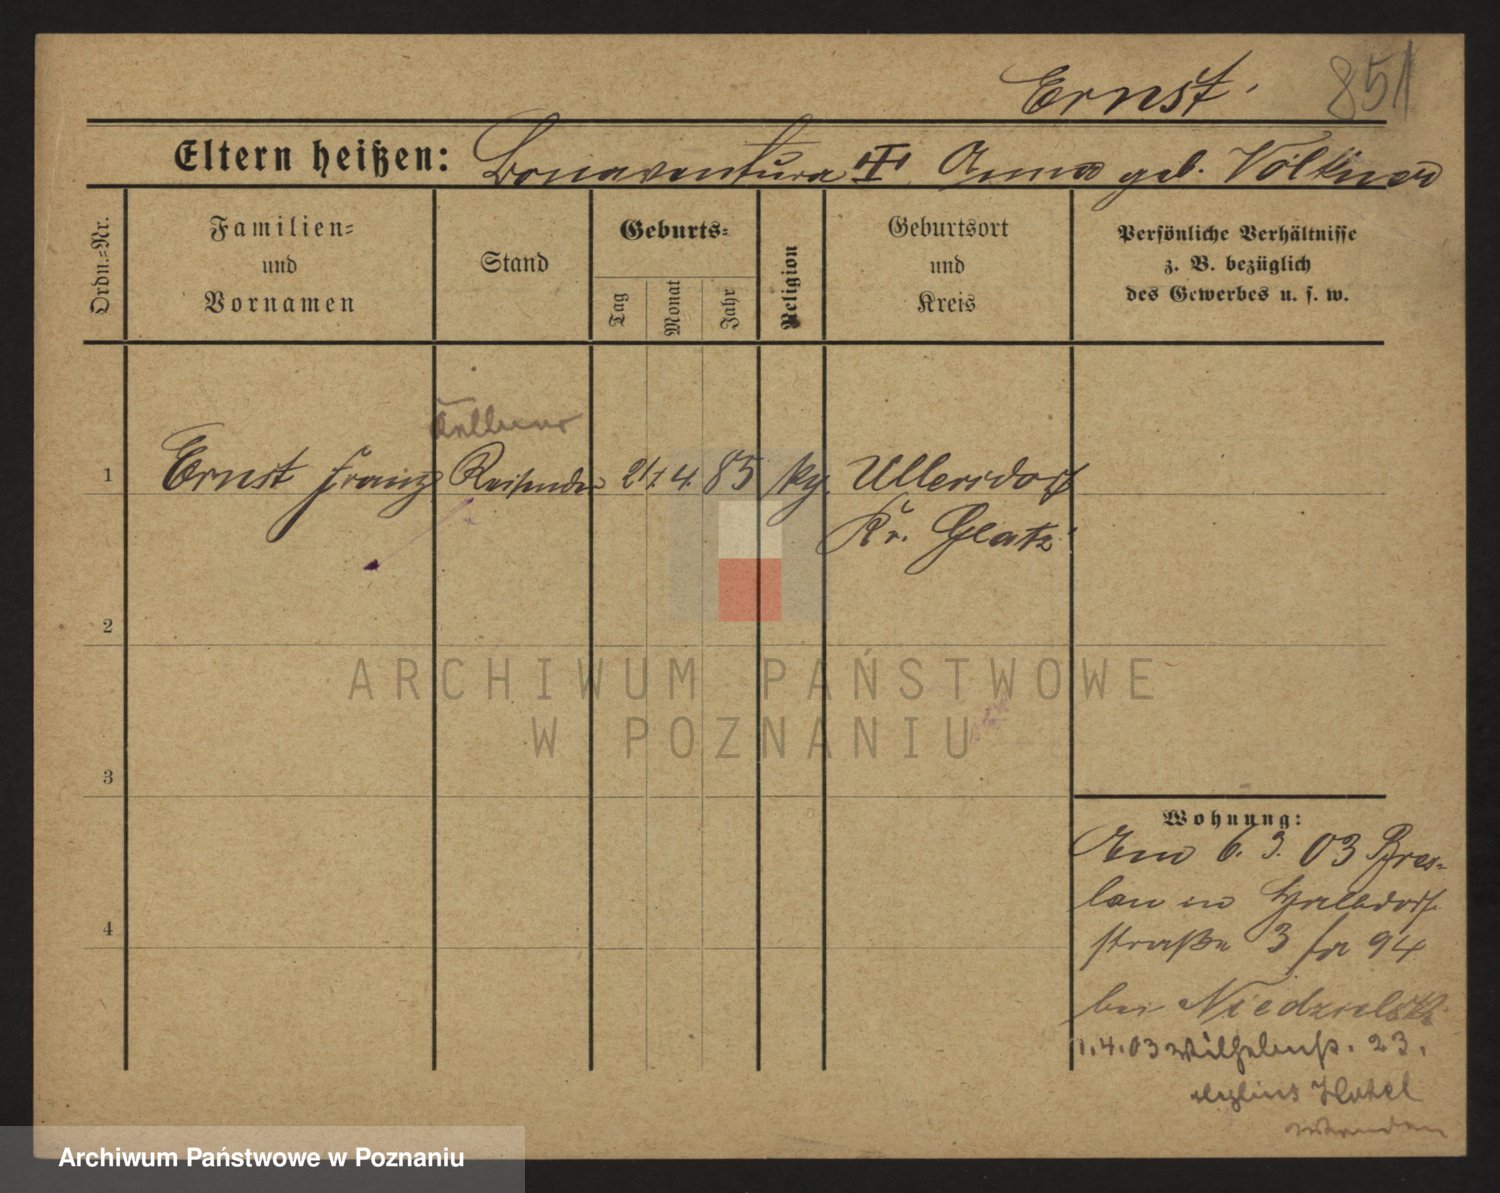 Ernst. 851
Eltern heißen: Bonaventura Anna geb. Völkner
Ordn.-Nr.
Familien-
und
Vornamen
Stand
Geburts-
Tag
Monat
Jahr
Religion
Geburtsort
und
Kreis
Persönliche Verhältnisse
z. B. bezüglich
des Gewerbes u. s. w.
Kellner
1 Ernst Franz Reisender 21. 4. 85 kg. Ullersdorf
Kr. Glatz
2
ARCHIWUM PAŃSTWOWE
W POZNANIU
3
4
Wohnung:
Am 6. 3. 03 Bres-
lau
straße 3 94
bei Niedzielski
1.4.03 Wilhelmstr. 23.
Mylius Hotel
Archiwum Państwowe w Poznaniu